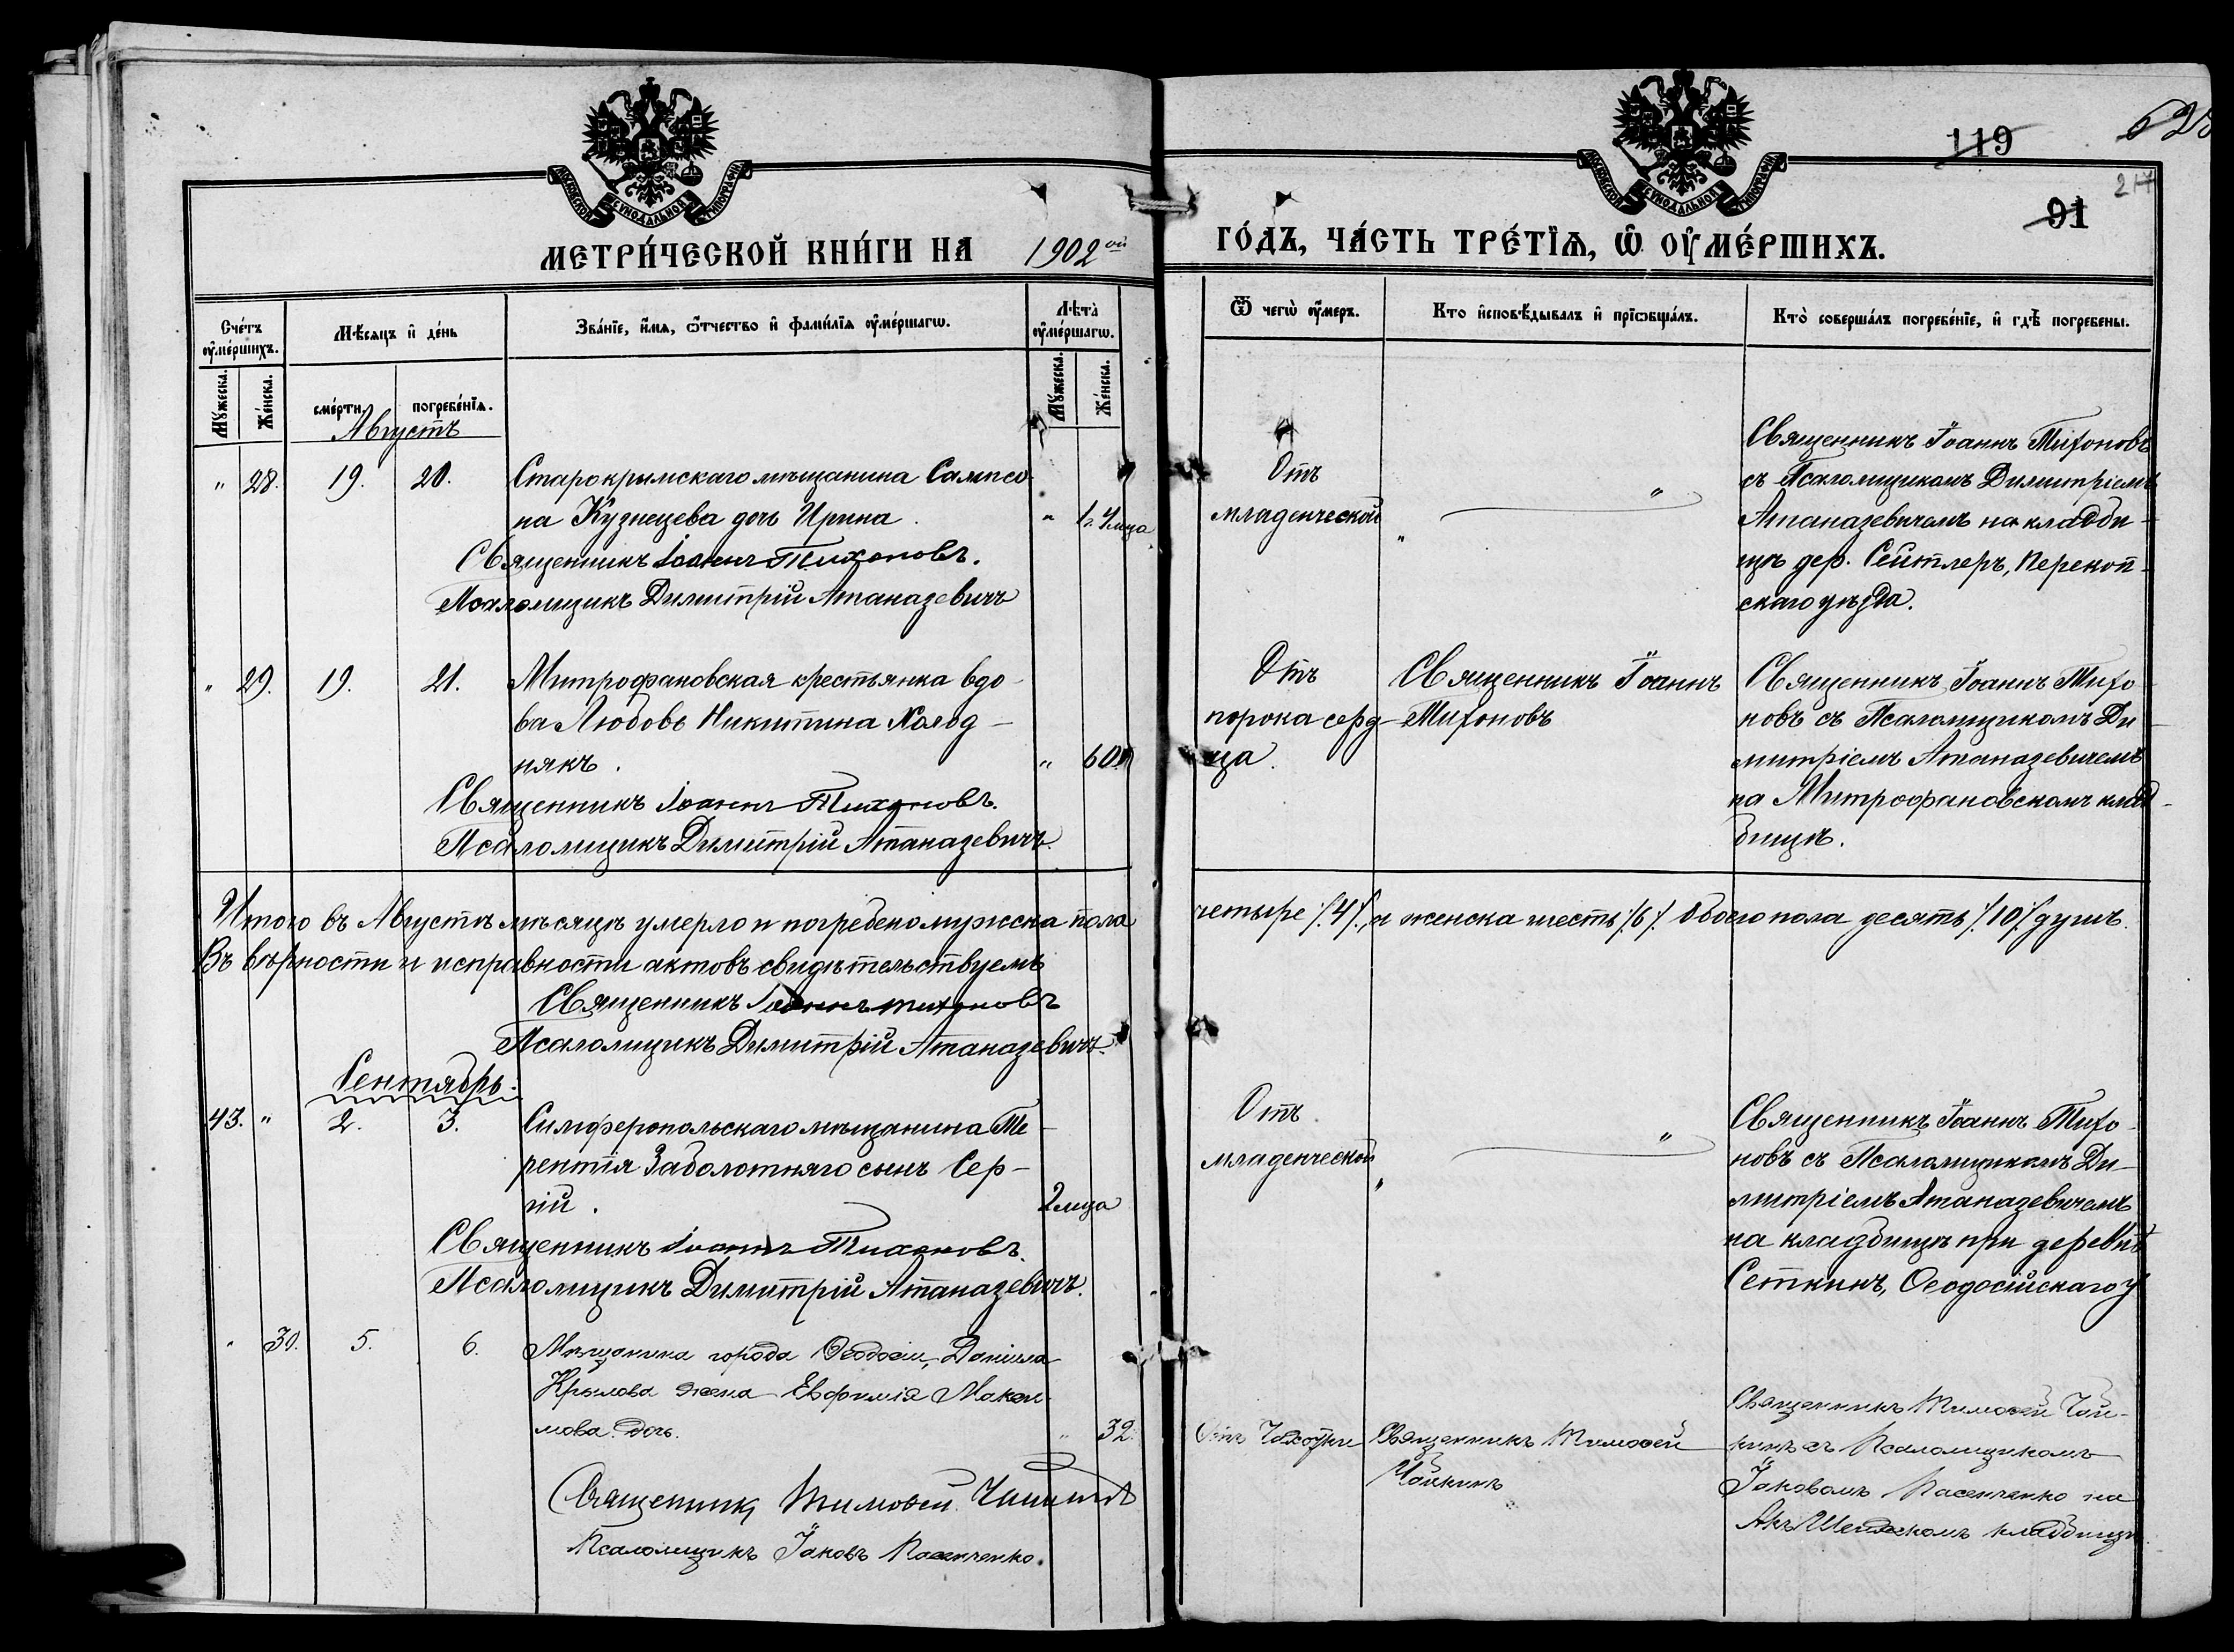 119
628
91
МОСКОВСКОЙ СУНОДАЛЬНОЙ ТИПОГРАФІИ
МОСКОВСКОЙ СУНОДАЛЬНОЙ ТИПОГРАФІИ
МЕТРИ́ЧЕСКОЙ КНИ́ГИ НА 1902ой
ГО́ДЪ, ЧА́СТЬ ТРЕ́ТЇѦ, Ѡ҆ ОУ҆МЕ́РШИХЪ.
Сче́тъ оу҆ме́ршихъ.
Мѣ́сѧцъ и҆ де́нь
Зва́нїе, и҆́мѧ, ѻ҆́тчество и҆ фами́лїѧ оу҆ме́ршагѡ.
Лѣ̀та оу҆ме́ршагѡ.
Ѿ чегѡ̀ оу҆́меръ.
Кто̀ и҆сповѣ́дывалъ и҆ прїѡбща́лъ.
Кто̀ соверша́лъ погребе́нїе, и҆ гдѣ̀ погребены.
Мꙋ́жеска.
Же́нска.
сме́рти.
погребе́нїѧ.
Мꙋ́жеска.
Же́нска.
Августъ
" 28. 19. 20. Старокрымскаго мѣщанина Сампсо-
на Кузнецева дочь Ирина.
" 1г. 4 мца
Священникъ Іоаннъ Тихоновъ.
Псаломщикъ Димитрій Атаназевичъ
Отъ
младенческой
"
"
Священникъ Іоаннъ Тихоновъ
съ Псаломщикомъ Димитріемъ
Атаназевичемъ на кладби-
щѣ дер. Сейтлеръ, Перекоп-
скаго уѣзда.
" 29. 19. 21. Митрофановская крестьянка вдо-
ва Любовь Никитина Холод-
някъ. " 60
Священникъ Іоаннъ Тихоновъ.
Псаломщикъ Димитрій Атаназевичъ.
Отъ
порока серд-
ца.
Священникъ Іоаннъ
Тихоновъ
Священникъ Іоаннъ Тихо-
новъ съ Псаломщикомъ Ди-
митріемъ Атаназевичемъ
на Митрофановскомъ клад-
бищѣ.
Итого въ Августѣ мѣсяцѣ умерло и погребено мужска пола четыре /.4/., и женска шесть /.6/. Обоего пола десять /.10/. душъ.
Въ вѣрности и исправности актовъ свидѣтельствуемъ
Священникъ Іоаннъ Тихоновъ
Псаломщикъ Димитрій Атаназевичъ.
Сентябрь.
43. " 2. 3. Симферопольскаго мѣщанина Те-
рентія Заболотняго сынъ Сер-
гій. 2 мца
Священникъ Іоаннъ Тихоновъ.
Псаломщикъ Димитрій Атаназевичъ.
Отъ
младенческой
"
"
Священникъ Іоаннъ Тихо-
новъ съ Псаломщикомъ Ди-
митріемъ Атаназевичемъ
на кладбищѣ при деревнѣ
Сеткинъ, Ѳеодосійскаго у
" 30. 5. 6. Мѣщанина города Ѳеодосіи, Даніила
Крылова жена Евфимія Макси-
мова дочь. " 32.
Священникъ Тимоѳей
Псаломщикъ Іаковъ Пасенченко.
Отъ Чахотки
Священникъ Тимоѳей
Чайкинъ
Священникъ Тимоѳей Чай-
кинъ съ Псаломщикомъ
Іаковомъ Пасенченко на
Акъ Шеихскомъ кладбищѣ.